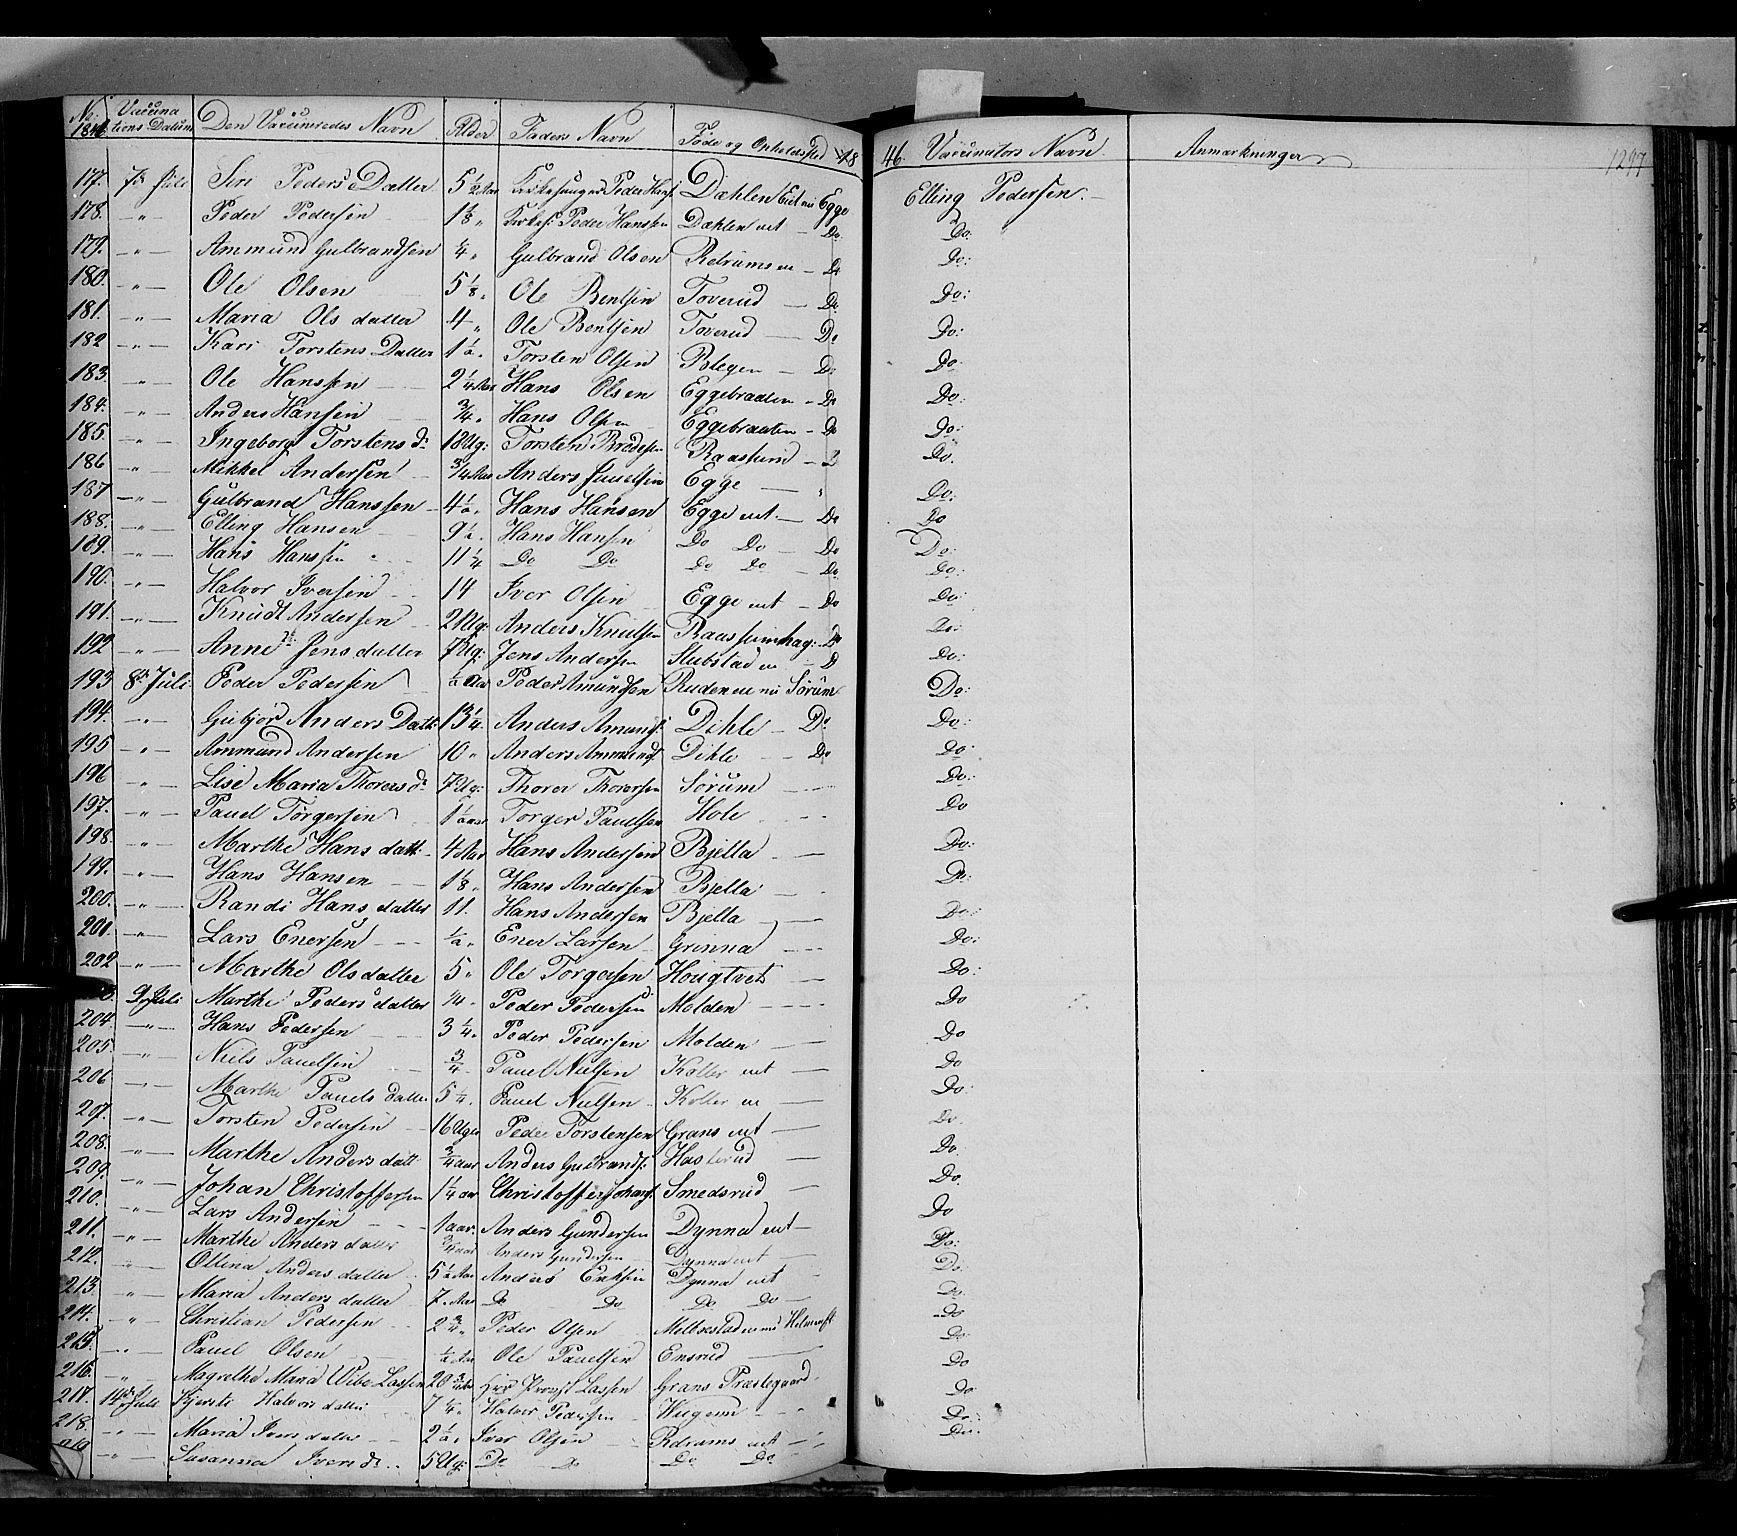 No 1846 Vaccinations Datum Den Vaccineredes Navn Alder Faders Navn Føde og Opholdssted 18 46. Vaccinators Navn Anmærkninger 1297
177. 7de Juli Siri Peders Datter 5 1/2 Aar Kirkesanger Peder Hans: Dæhlen Eiet nu Egge Elling Pedersen.
178. -"- Peder Pedersen 1 1/8 " Kirkes: Peder Hanssen Dæhlen eiet - Do Do.
179. -"- Ammund Gulbrandsen 1/4 " Gulbrand Olsen - Do Do:
180. -"- Ole Olsen 5 1/8 " Ole Bentsen Toverud - Do Do:
181. -"- Maria Olsdatter 4 " Ole Bentsen Toverud - Do Do:
182 -"- Kari Torstens Datter 1 1/2 " Torsten Olsen - Do Do:
183. -"- Ole Hanssen 2 1/4 Aar Hans Olsen Eggebraaten - Do Do:
184. -"- Anders Hansen 3/4 " Hans Olsen Eggebraaten - Do Do:
185. -"- Ingeborg Torstens d: 18 Ug: Torsten Do.
186 -"- Mikkel Andersen 3/4 Aar Anders Paulsen Egge - " Do:
187 -"- Gulbrand Hanssen 4 1/2 " Hans Hansen Egge eiet - Do Do
188. -"- Elling Hansen 9 1/2 Hans Hansen Do Do - Do Do:
189. -"- Hans Hanssen 11 1/4 Do Do Do Do - Do Do:
190. -"- Halvor Iversen 14 Iver Olsen Egge eiet - Do Do:
191. -"- Knudt Andersen 21 Ug: Anders Knutsen - Do Do:
192 -"- Anne Jensdatter 7 Ug: Jens Andersen - D Do:
193 8de Juli Peder Pedersen 1/2 Aar Peder Amundsen Sørum Do:
194. -"- Gubjør Anders Datt: 13 1/4 Anders Amunds: Dihle - Do Do:
195 -"- Ammund Andersen 10 " Anders Ammunds: Dihle - Do Do:
196 -"- Lise Maria Thorers d: 7 Ug: Thorer Thorersen Sørum Do:
197. -"- Pauel Torgersen 1 1/2 aar Torger Pauelsen Hole Do
198. -"- Marthe Hansdatt: 4 Aar Hans Andersen Bjella - Do:
199. -"- Hans Hansen 1 1/8 " Hans Andersen Bjella - Do:
200. -"- Randi Hansdatter 11. Hans Andersen Bjella - Do:
201. -"- Lars Enersen 1/2 " Ener Larsen Grinna Do:
202 -"- Marthe Olsdatter 5 " Ole Torgersen Hougtvet Do:
203. 9de Juli Marthe Pedersdatter 1/4 " Peder Pedersen Molden - Do
204. -"- Hans Pedersen 3 1/4 " Peder Pedersen Molden - Do
205. -"- Niels Pauelsen 3/4 " Pauel Nielsen Koller eiet - Do
206 -"- Marthe Pauels datter 5 1/4 " Pauel Nielsen Koller ei - Do:
207. -"- Torsten Pedersen 16 Uger Peder Torstensen Grans eiet - Do.
208. -"- Marthe Anders datt: 3/4 Aar Anders Gulbrands: Hasterud - Do.
209. -"- Johan Christoffersen 1 1/4 aar Christoffer Johans: Smedsrud - Do.
210. -"- Lars Andersen 1 aar. Anders Gundersen Dynna eiet - Do
211. -"- Marthe Anders datter 3/4 aar Anders Gundersen Dynna eiet Do:
212. -"- Ollina Anders datter 5 1/2 Aar Anders Eriksen Dynna eiet Do.
213. -"- Maria Anders datter 7. Aar Do Do Do Do - Do.
214. -"- Christian Pedersen 2 3/4 " Peder Olsen Do
215. -"- Pauel Olsen 1/2 Aar Ole Pauelsen Ensrud Do:
216. -"- Magrethe Maria Wibe Lassen 20 3/4 Aar Herr Provst Lassen Grans Præstegaard. Do
217. 14de Juli Kjersti Halvorsdatter 7 1/4 " Halvor Pedersen Do
218. -"- Maria Iversdatter 2 1/2 " Iver Olsen Do:
219 -"- Susanna Ivers d: 5 Ug: Do Do Do Do Do.